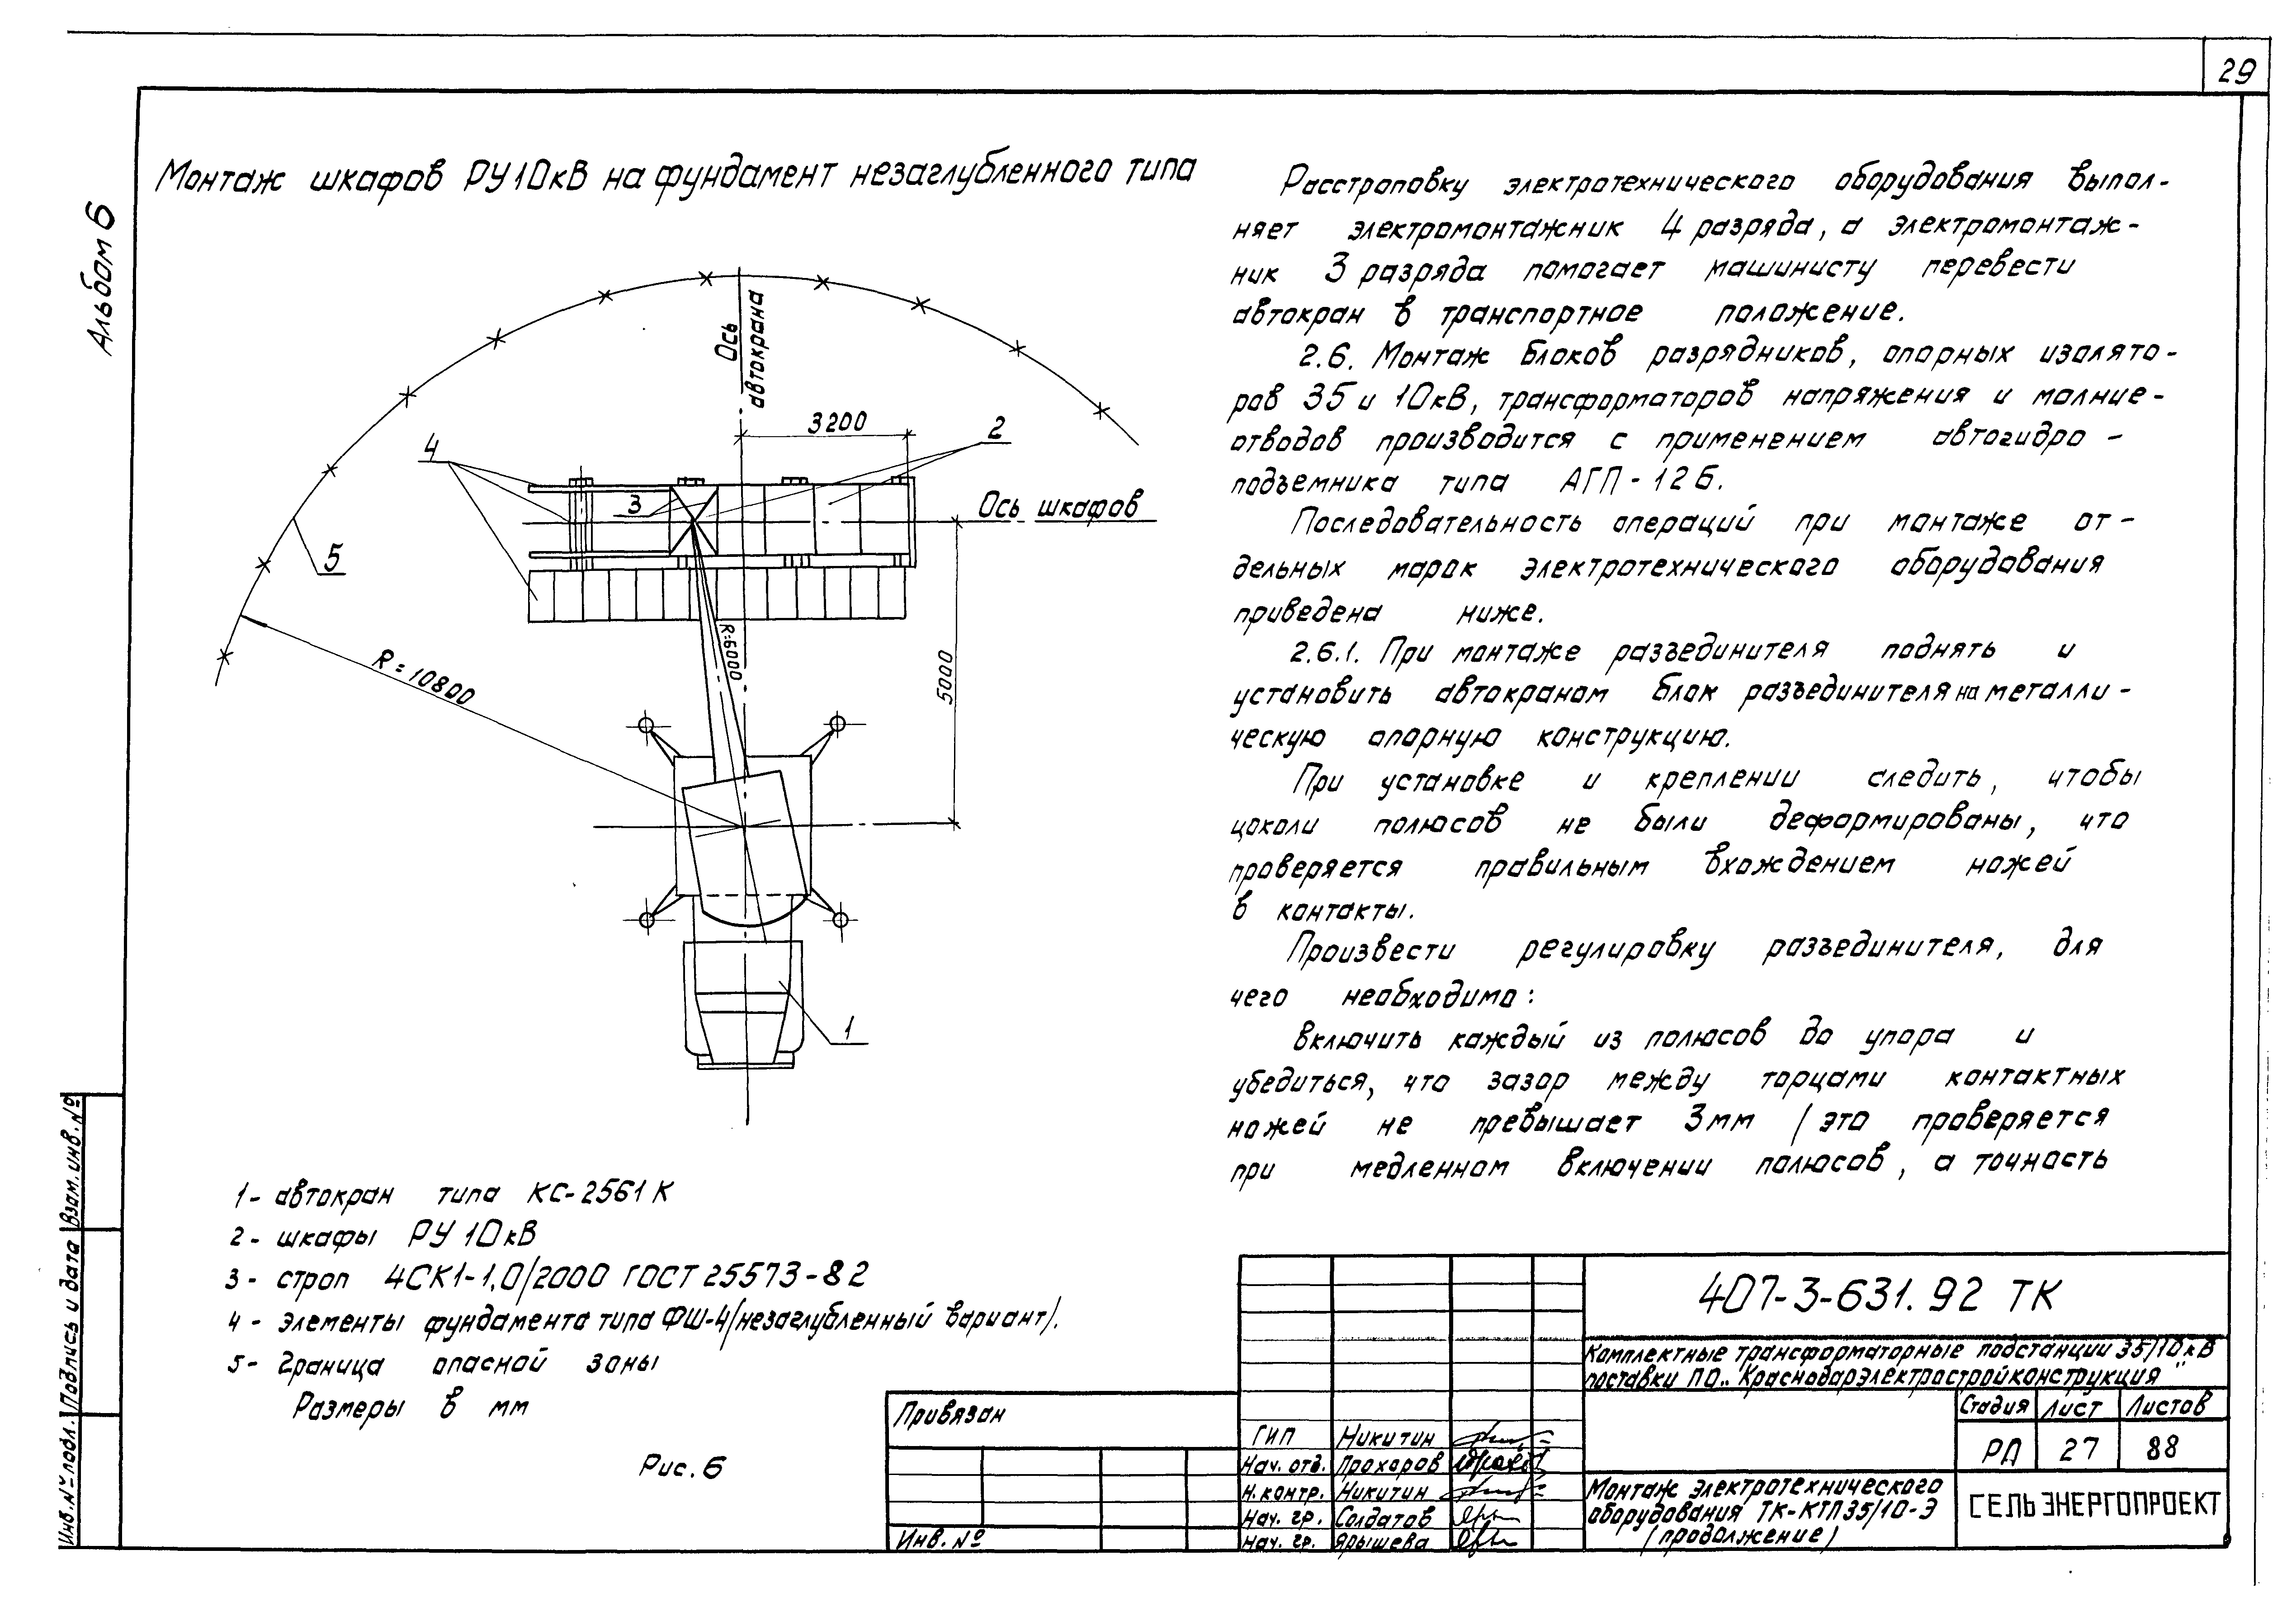 29
Альбом 6
Монтаж шкафов РУ 10кВ на фундамент незаглубленного типа
Ось
автокрана
3200
2
4
3
Ось шкафов
5
R=6000
5000
R=10800
1
1- автокран типа КС-2561К
2- шкафы РУ 10кВ
3- строп 4СК1-1,0/2000 ГОСТ 25573-82
4- элементы фундамента типа ФШ-4/незаглубленный вариант/.
5- Граница опасной зоны
Размеры в мм
Рис. 6
Расстроповку электротехнического оборудования выпол-
няет электромонтажник 4 разряда, а электромонтаж-
ник 3 разряда помогает машинисту перевести
автокран в транспортное положение.
2.6. Монтаж блоков разрядников, опорных изолято-
ров 35 и 10кВ, трансформаторов напряжения и молние-
отводов производится с применением автогидро-
подъемника типа АГП-12б.
Последовательность операций при монтаже от-
дельных марок электротехнического оборудования
приведена ниже.
2.6.1. При монтаже разъединителя поднять и
установить автокраном блок разъединителя на металли-
ческую опорную конструкцию.
При установке и креплении следить, чтобы
цоколи полюсов не были деформированы, что
проверяется правильным вхождением ножей
в контакты.
Произвести регулировку разъединителя, для
чего необходимо:
включить каждый из полюсов до упора и
убедиться, что зазор между торцами контактных
ножей не превышает 3мм /это проверяется
при медленном включении полюсов, а точность
Взам. инв. №
Подпись и дата
Инв. № подл.
Привязан
Инв. №
ГИП Никитин
Нач. отд. Прохоров
Н. контр. Никитин
Нач. гр. Солдатов
Нач. гр. Ярышева
407-3-631.92 ТК
Комплектные трансформаторные подстанции 35/10кВ
поставки ПО „Краснодарэлектростройконструкция"
Стадия Лист Листов
РД 27 88
Монтаж электротехнического
оборудования ТК-КТП35/10-Э
(продолжение)
СЕЛЬЭНЕРГОПРОЕКТ